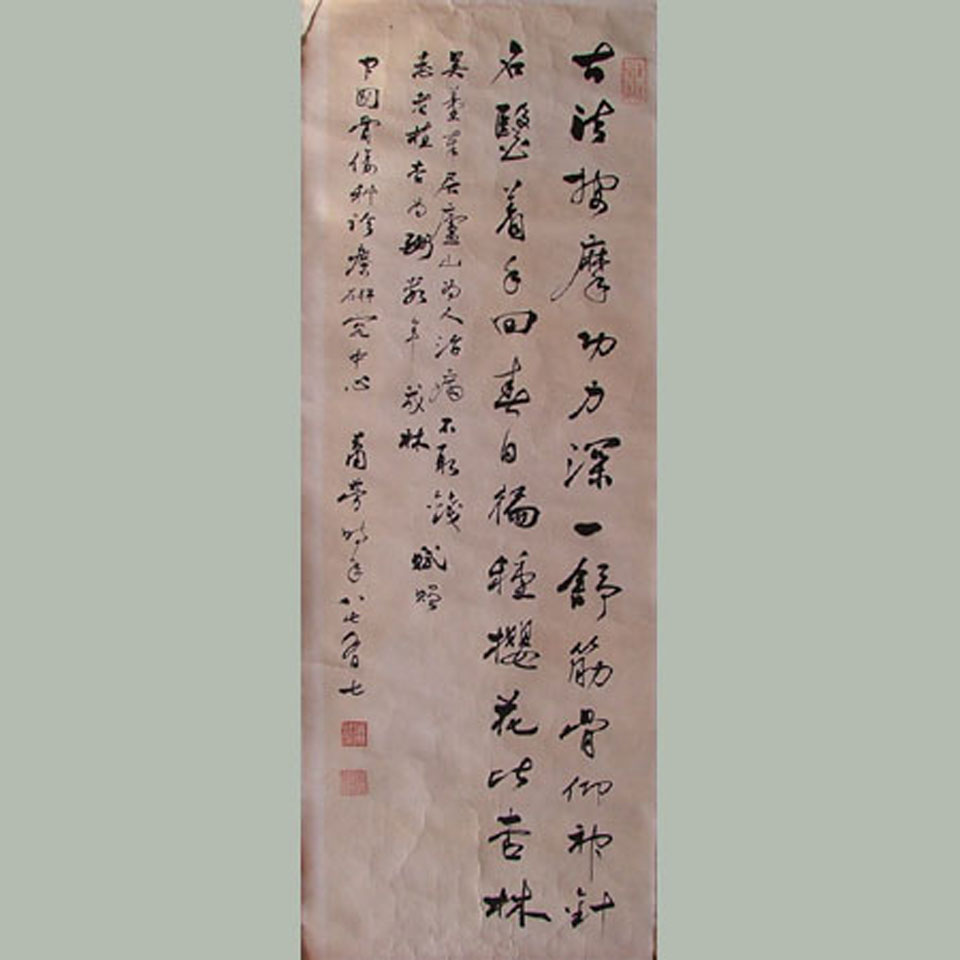 古法按摩功力深一舒筋骨仰神針
名醫着手回春自徧種櫻花比杏林
吴董奉居廬山為人治病不取錢賦贈
愈者植杏為酬數年成林
中國骨傷科診療研究中心 蕭勞時年八十有七